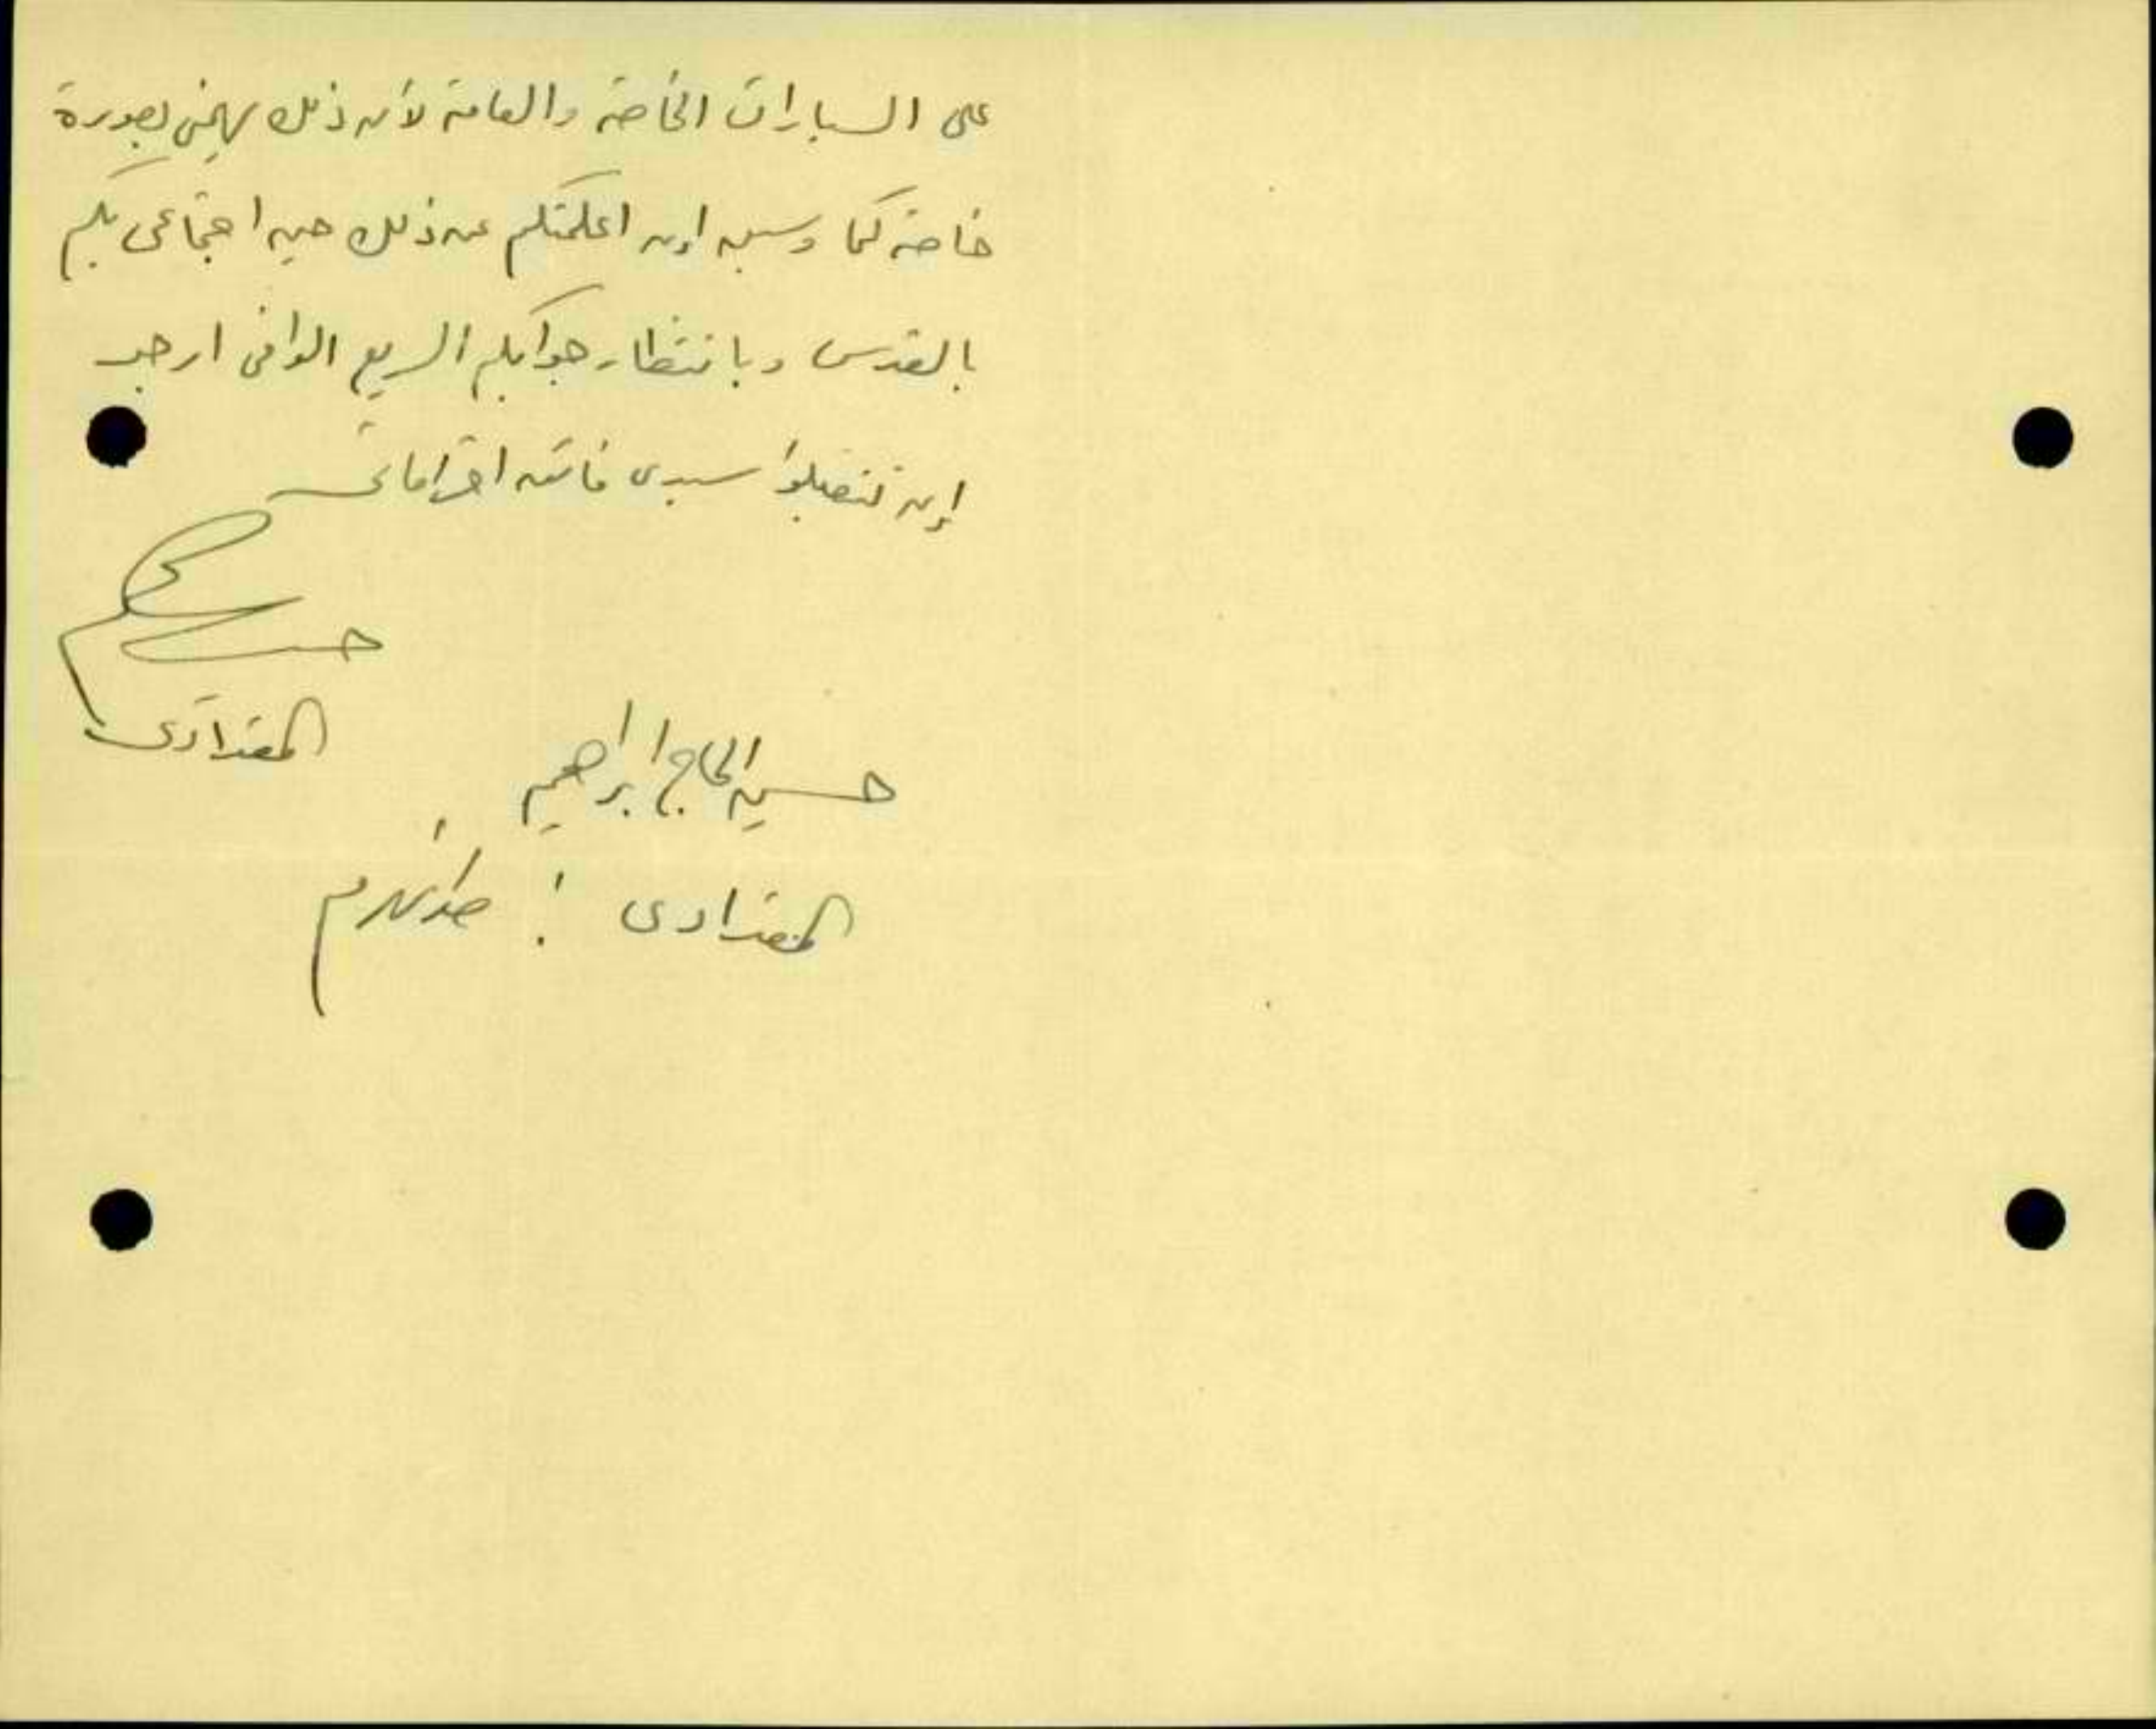 على السيارات الخاصة والعامة لأن ذلك يهمني بصورة
خاصة كما وسبق ان اعلمتكم عن ذلك حين اجتماعي بكم
بالقدس وبانتظار جوابكم السريع الوافي ارجو
إن تتفضلوا سيدي فائق احترامات
المقدادي
حسين الحاج ابراهيم
المقدادي ! طولكرم